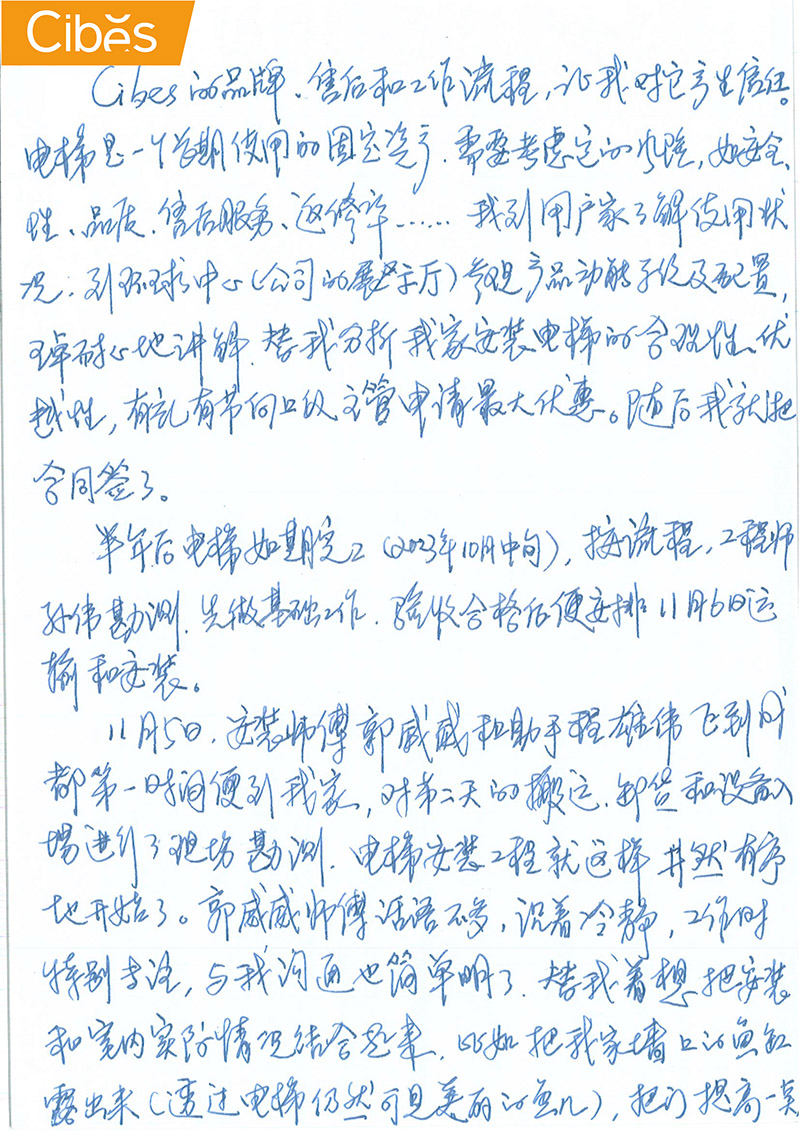 Cibes
Cibes的品牌、售后和工作流程,让我对它产生信任。
电梯是一个长期使用的固定资产,需要考虑它的风险,如安全
性、品质、售后服务、返修率……我到用户家了解使用状
况,到环球中心(公司的展示厅)参观产品功能手段及配置,
耐心地讲解,替我分析我家安装电梯的合理性、优
越性,有礼有节向上级主管申请最大优惠。随后我就把
合同签了。
半年后电梯如期完工(2023年10月中旬),按流程,工程师
孙伟勘测,先做基础工作,验收合格后便安排11月6日运
输和安装。
11月5日,安装师傅郭威威和助手程雄伟飞到成
都第一时间便到我家,对第二天的搬运、卸货和设备入
场进行了现场勘测,电梯安装工程就这样井然有序
地开始了。郭威威师傅话语不多,沉着冷静,工作时
特别专注,与我沟通也简单明了,替我着想把安装
和室内实际情况结合起来,比如把我家墙上的鱼缸
露出来(透过电梯仍然可见美丽的鱼儿),把门提高一点